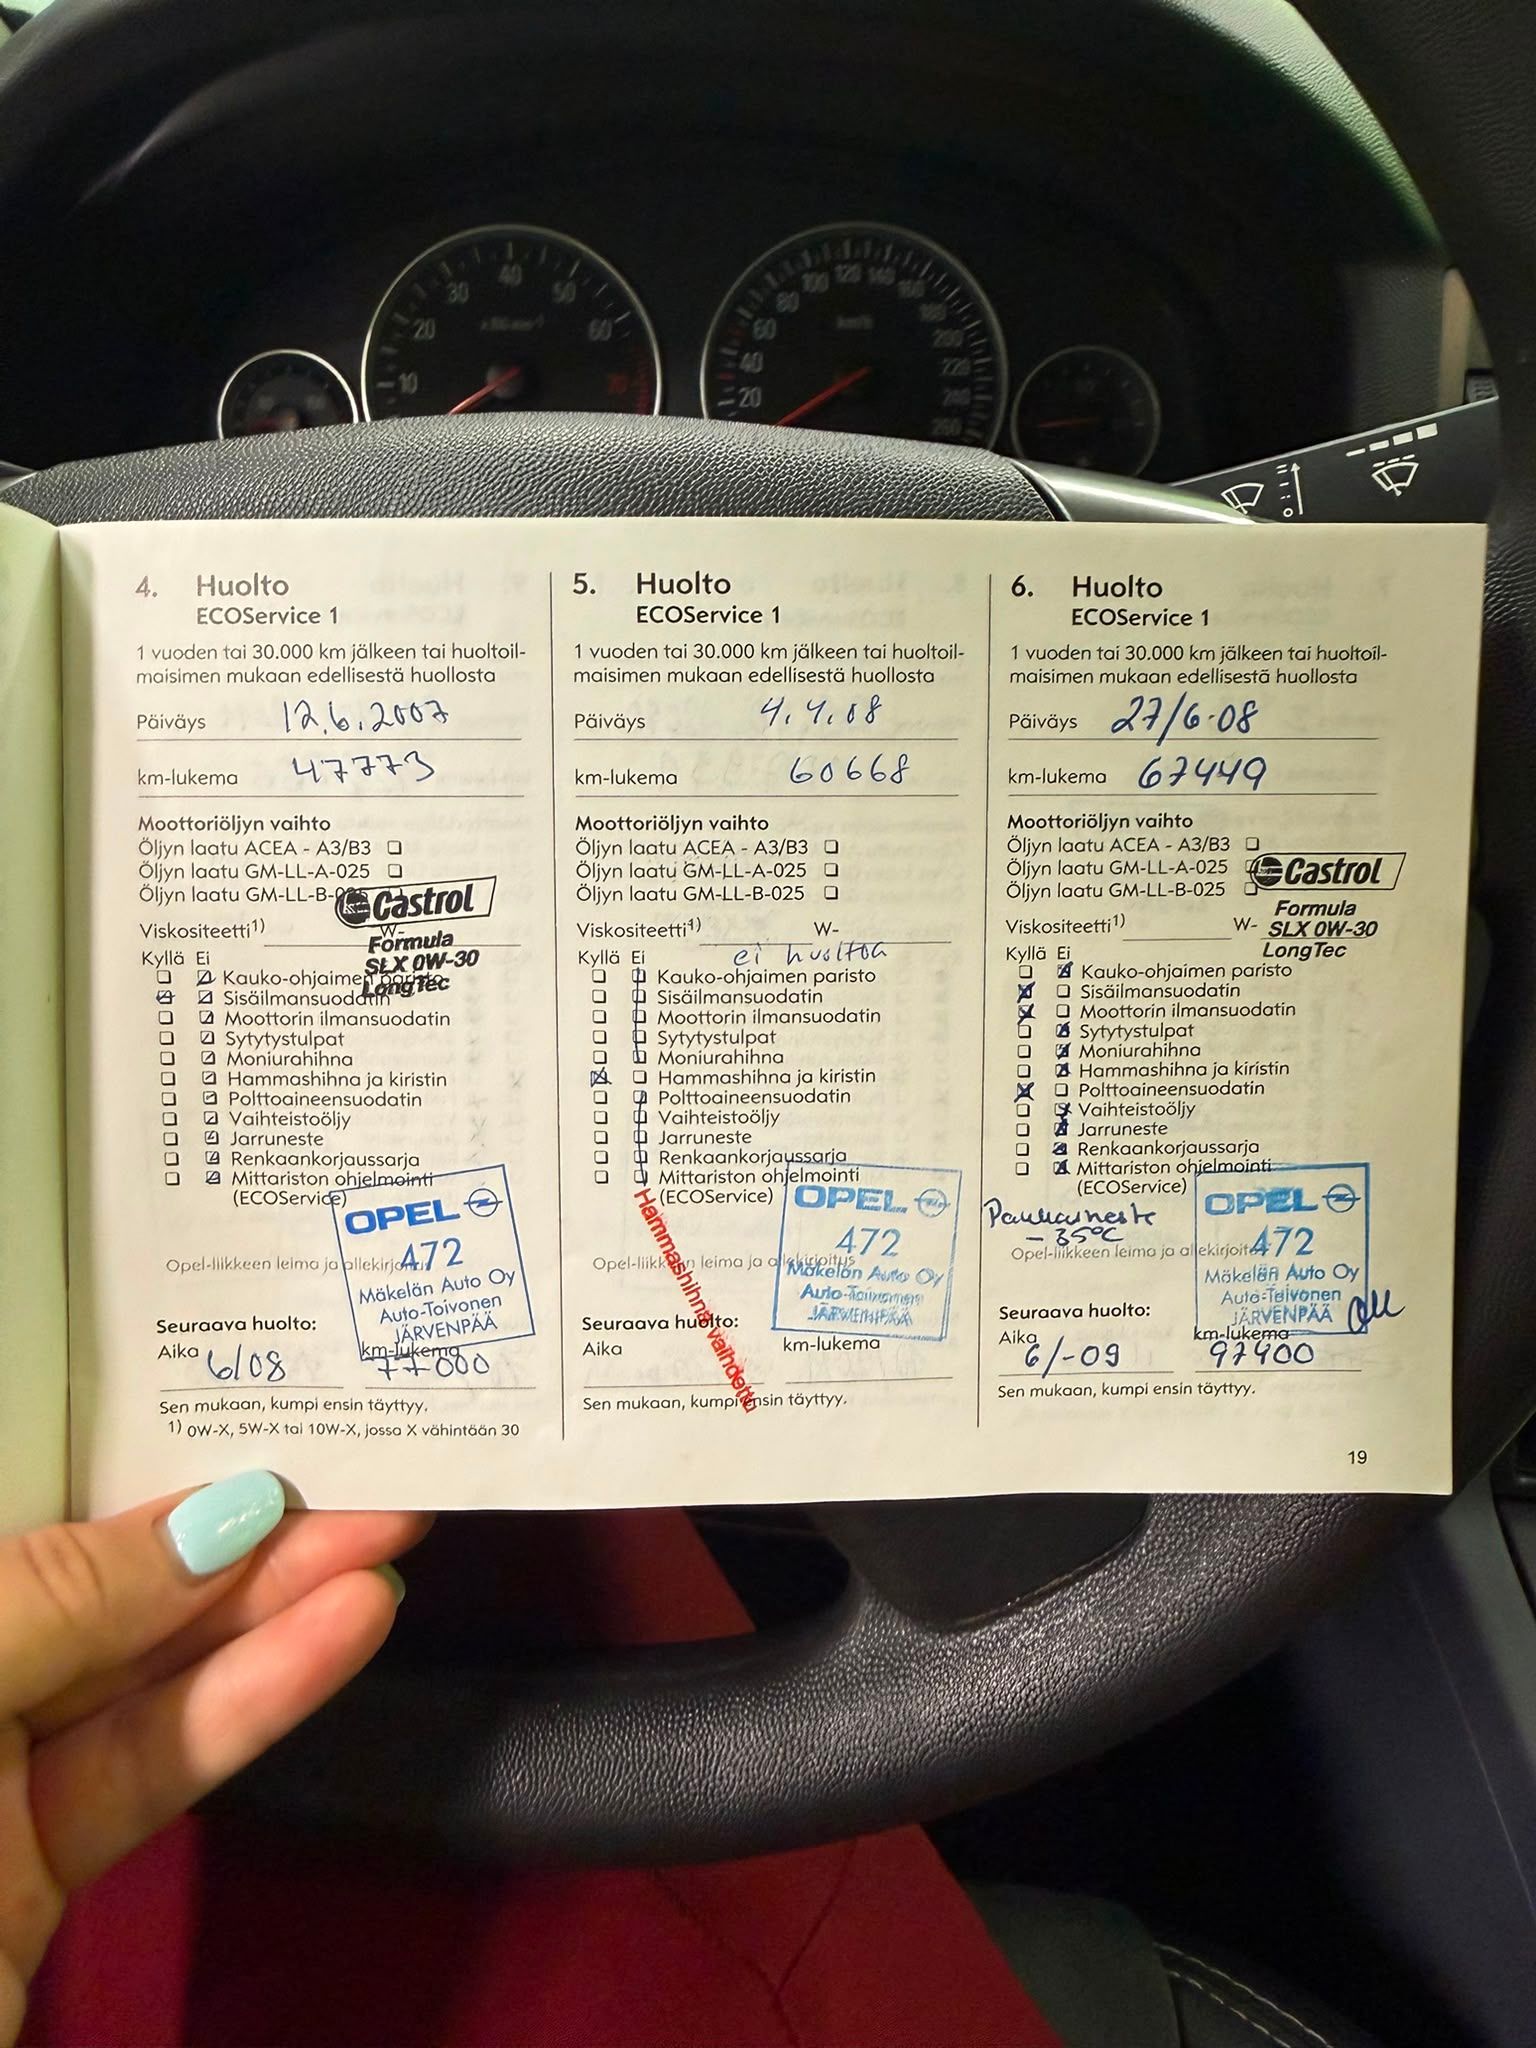 10
20
30
40
50
60
70
20
40
60
80
100
120
140
160
180
200
220
240
260
km/h
4. Huolto
ECOService 1
1 vuoden tai 30.000 km jälkeen tai huoltoil-
maisimen mukaan edellisestä huollosta
Päiväys 12.6.2007
km-lukema 47773
Moottoriöljyn vaihto
Öljyn laatu ACEA - A3/B3
Öljyn laatu GM-LL-A-025
Öljyn laatu GM-LL-B-025
Castrol
Viskositeetti1) W-
Formula
SLX 0W-30
LongTec
Kyllä Ei
Kauko-ohjaimen paristo
Sisäilmansuodatin
Moottorin ilmansuodatin
Sytytystulpat
Moniurahihna
Hammashihna ja kiristin
Polttoaineensuodatin
Vaihteistoöljy
Jarruneste
Renkaankorjaussarja
Mittariston ohjelmointi
(ECOService)
OPEL
472
Mäkelän Auto Oy
Auto-Toivonen
JÄRVENPÄÄ
Opel-liikkeen leima ja allekirjoitus
Seuraava huolto:
Aika 6/08
km-lukema 77000
Sen mukaan, kumpi ensin täyttyy.
1) 0W-X, 5W-X tai 10W-X, jossa X vähintään 30
5. Huolto
ECOService 1
1 vuoden tai 30.000 km jälkeen tai huoltoil-
maisimen mukaan edellisestä huollosta
Päiväys 4.4.08
km-lukema 60668
Moottoriöljyn vaihto
Öljyn laatu ACEA - A3/B3
Öljyn laatu GM-LL-A-025
Öljyn laatu GM-LL-B-025
Viskositeetti1) W-
ei huoltoa
Kyllä Ei
Kauko-ohjaimen paristo
Sisäilmansuodatin
Moottorin ilmansuodatin
Sytytystulpat
Moniurahihna
Hammashihna ja kiristin
Polttoaineensuodatin
Vaihteistoöljy
Jarruneste
Renkaankorjaussarja
Mittariston ohjelmointi
(ECOService)
Hammashihna vaihdettu
OPEL
472
Mäkelän Auto Oy
Auto-Toivonen
JÄRVENPÄÄ
Opel-liikkeen leima ja allekirjoitus
Seuraava huolto:
Aika
km-lukema
Sen mukaan, kumpi ensin täyttyy.
6. Huolto
ECOService 1
1 vuoden tai 30.000 km jälkeen tai huoltoil-
maisimen mukaan edellisestä huollosta
Päiväys 27/6-08
km-lukema 67449
Moottoriöljyn vaihto
Öljyn laatu ACEA - A3/B3
Öljyn laatu GM-LL-A-025
Öljyn laatu GM-LL-B-025
Castrol
Formula
Viskositeetti1) W- SLX 0W-30
LongTec
Kyllä Ei
Kauko-ohjaimen paristo
Sisäilmansuodatin
Moottorin ilmansuodatin
Sytytystulpat
Moniurahihna
Hammashihna ja kiristin
Polttoaineensuodatin
Vaihteistoöljy
Jarruneste
Renkaankorjaussarja
Mittariston ohjelmointi
(ECOService)
Pakkasneste
-35°C
OPEL
472
Mäkelän Auto Oy
Auto-Toivonen
JÄRVENPÄÄ
Opel-liikkeen leima ja allekirjoitus
Seuraava huolto:
Aika 6/-09
km-lukema 97400
Sen mukaan, kumpi ensin täyttyy.
19